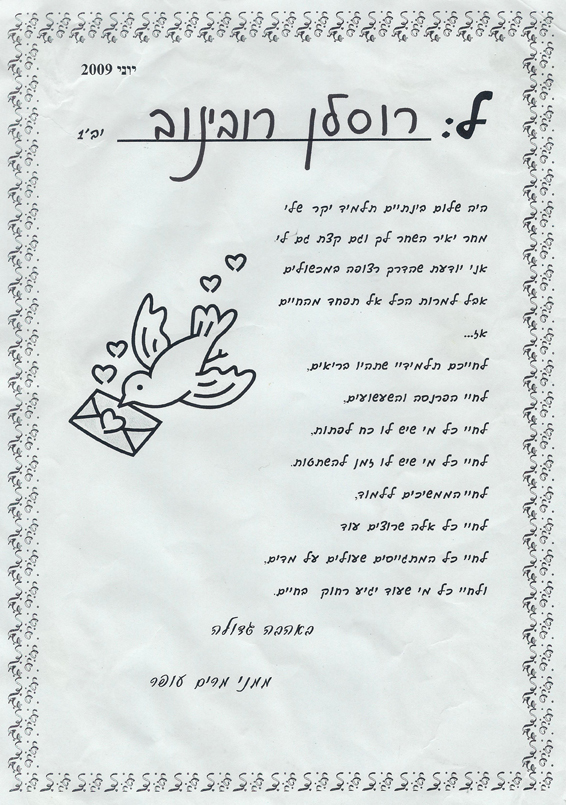 יוני 2009
ל: רוסלן רובינוב יב'1
היה שלום בינתיים תלמיד יקר שלי
מחר יאיר השחר לך וגם קצת גם לי
אני יודעת שהדרך רצופה במכשולים
אבל למרות הכל אל תפחד מהחיים
אז...
לחייכם תלמידיי שתהיו בריאים,
לחיי הפרנסה והשעשועים,
לחיי כל מי שיש לו כח לפתות,
לחיי כל מי שיש לו זמן להשתטות.
לחיי הממשיכים ללמוד,
לחיי כל אלה שרוצים עוד
לחיי כל המתגייסים שעולים על מדים,
ולחיי כל מי שעוד יגיע רחוק בחיים.
באהבה גדולה
ממני מרים עופר